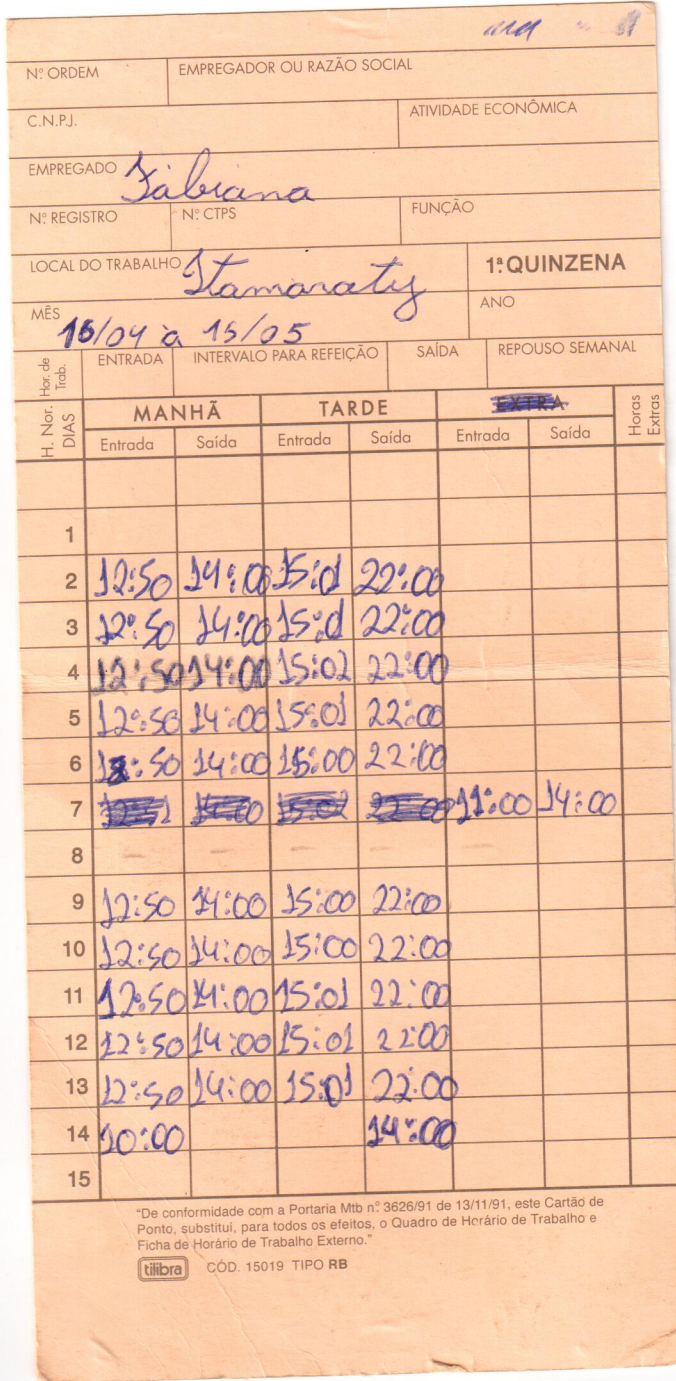 Nº ORDEM EMPREGADOR OU RAZÃO SOCIAL
C.N.P.J. ATIVIDADE ECONÔMICA
EMPREGADO Fabiana
Nº REGISTRO Nº CTPS FUNÇÃO
LOCAL DO TRABALHO Itamaraty 1ª QUINZENA
MÊS 16/04 a 15/05 ANO
Hor. de Trab. ENTRADA INTERVALO PARA REFEIÇÃO SAÍDA REPOUSO SEMANAL
H. Nor. DIAS MANHÃ TARDE EXTRA Horas Extras
Entrada Saída Entrada Saída Entrada Saída
1
2 12:50 14:00 15:01 22:00
3 12:50 14:00 15:01 22:00
4 12:50 14:00 15:02 22:00
5 12:50 14:00 15:01 22:00
6 12:50 14:00 15:00 22:00
7 11:00 14:00
8 - - - -
9 12:50 14:00 15:00 22:00
10 12:50 14:00 15:00 22:00
11 12:50 14:00 15:01 22:00
12 12:50 14:00 15:01 22:00
13 12:50 14:00 15:01 22:00
14 10:00 14:00
15
"De conformidade com a Portaria Mtb nº 3626/91 de 13/11/91, este Cartão de
Ponto, substitui, para todos os efeitos, o Quadro de Horário de Trabalho e
Ficha de Horário de Trabalho Externo."
tilibra CÓD. 15019 TIPO RB